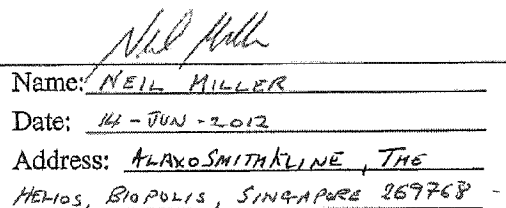 Neil Miller
Name: NEIL MILLER
Date: 14-JUN-2012
Address: GLAXOSMITHKLINE, THE
HELIOS, BIOPOLIS, SINGAPORE 269768